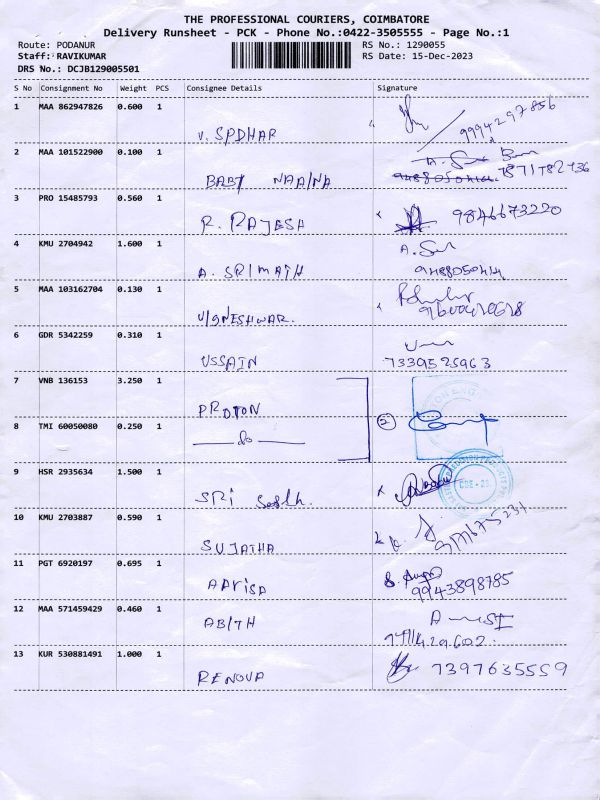 THE PROFESSIONAL COURIERS, COIMBATORE
Delivery Runsheet - PCK - Phone No.:0422-3505555 - Page No.:1
Route: PODANUR RS No.: 1290055
Staff: RAVIKUMAR RS Date: 15-Dec-2023
DRS No.: DCJB129005501
S No Consignment No Weight PCS Consignee Details Signature
1 MAA 862947826 0.600 1 V. SPDHAR 9994297856
2 MAA 101522900 0.100 1 BABY 7871782436
3 PRO 15485793 0.560 1 R. RAJESH 9846673220
4 KMU 2704942 1.600 1 A. SRIMATH
5 MAA 103162704 0.130 1 VIGNESHWAR.
6 GDR 5342259 0.310 1 USSAIN 7339525963
7 VNB 136153 3.250 1 PROTON
8 TMI 60050080 0.250 1 do 2
9 HSR 2935634 1.500 1 SRI
10 KMU 2703887 0.590 1 SUJATHA
11 PGT 6920197 0.695 1 9943898785
12 MAA 571459429 0.460 1 ABITH
13 KUR 530881491 1.000 1 RENOVA 7397635559